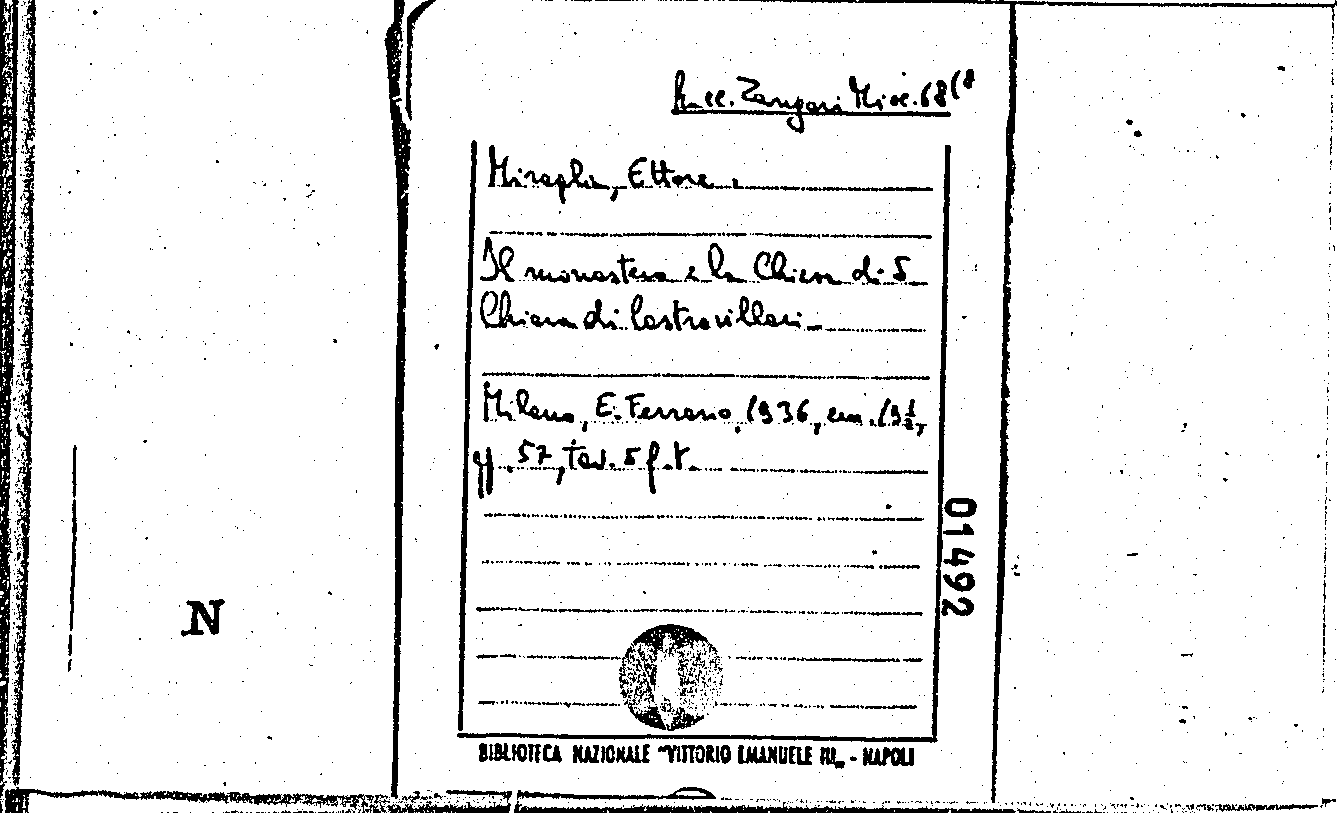 Racc. Zangari Misc. 68(8
Miraglia, Ettore.
Il monastero e la Chiesa di S.
Chiara di Castrovillari.
Milano, E. Ferrario, 1936, cm. 19½,
pp. 57, tav. 5 f.t.
01492
N
BIBLIOTECA NAZIONALE "VITTORIO EMANUELE III„ - NAPOLI